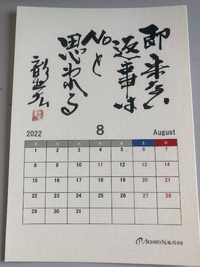 即来ない
返事は
Noと
思われる
2022
8
August
1 2 3 4 5 6 7
8 9 10 11 12 13 14
15 16 17 18 19 20 21
22 23 24 25 26 27 28
29 30 31